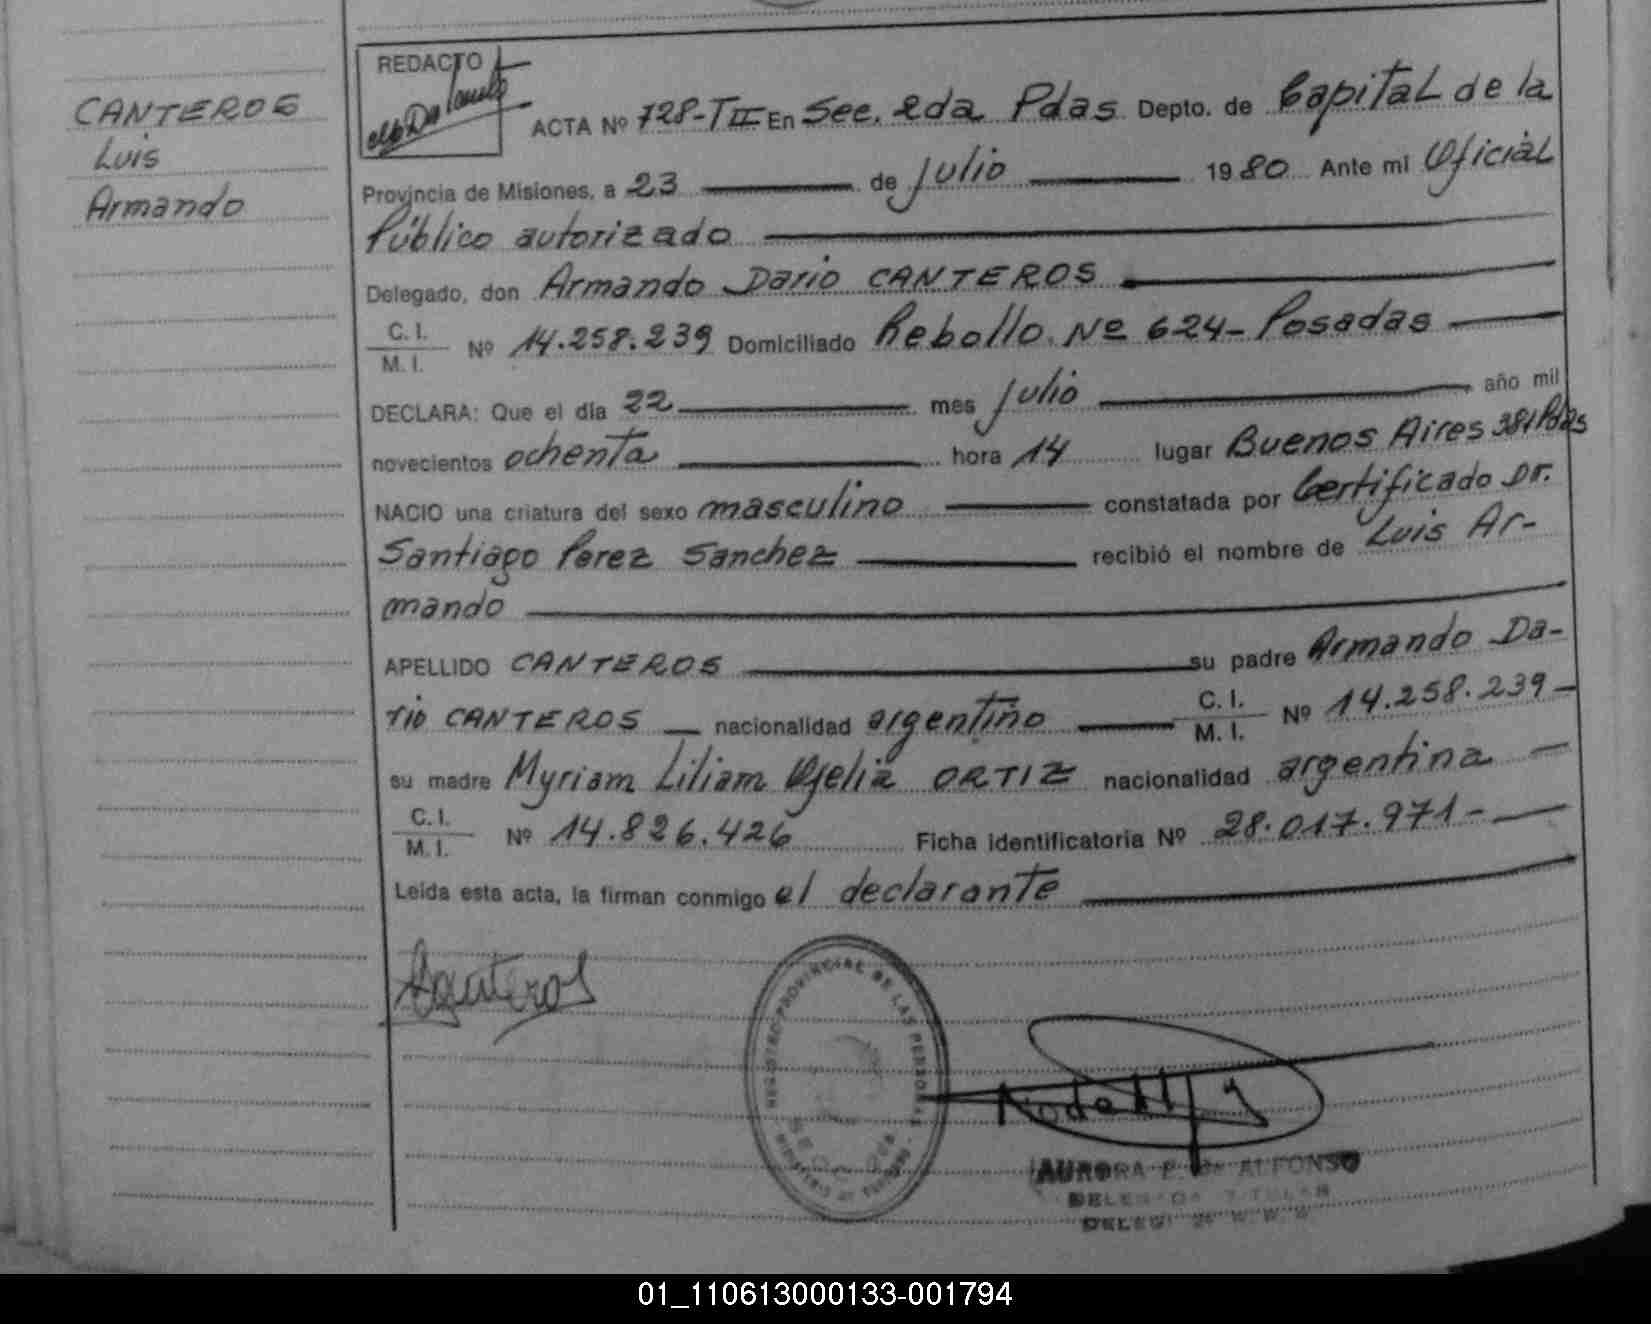 CANTEROS
Luis
Armando
REDACTO
ACTA Nº 728-TII En Sec. 2da Pdas Depto. de Capital de la
Provincia de Misiones, a 23 de Julio 1980 Ante mi Oficial
Público autorizado
Delegado, don Armando Dario CANTEROS
C. I.
M. I. Nº 14.258.239 Domiciliado Rebollo Nº 624- Posadas
DECLARA: Que el día 22 mes Julio año mil
novecientos ochenta hora 14 lugar Buenos Aires 381 Pdas
NACIO una criatura del sexo masculino constatada por Certificado Dr.
Santiago Perez Sanchez recibió el nombre de Luis Ar-
mando
APELLIDO CANTEROS su padre Armando Da-
rio CANTEROS nacionalidad argentino C. I. M. I. Nº 14.258.239-
su madre Myriam Liliam Ofelia ORTIZ nacionalidad argentina
C. I.
M. I. Nº 14.826.426 Ficha identificatoria Nº 28.017.971-
Leída esta acta, la firman conmigo el declarante
Canteros
REGISTRO PROVINCIAL DE LAS PERSONAS
AURORA E. De ALFONSO
DELEGADA TITULAR
01_110613000133-001794